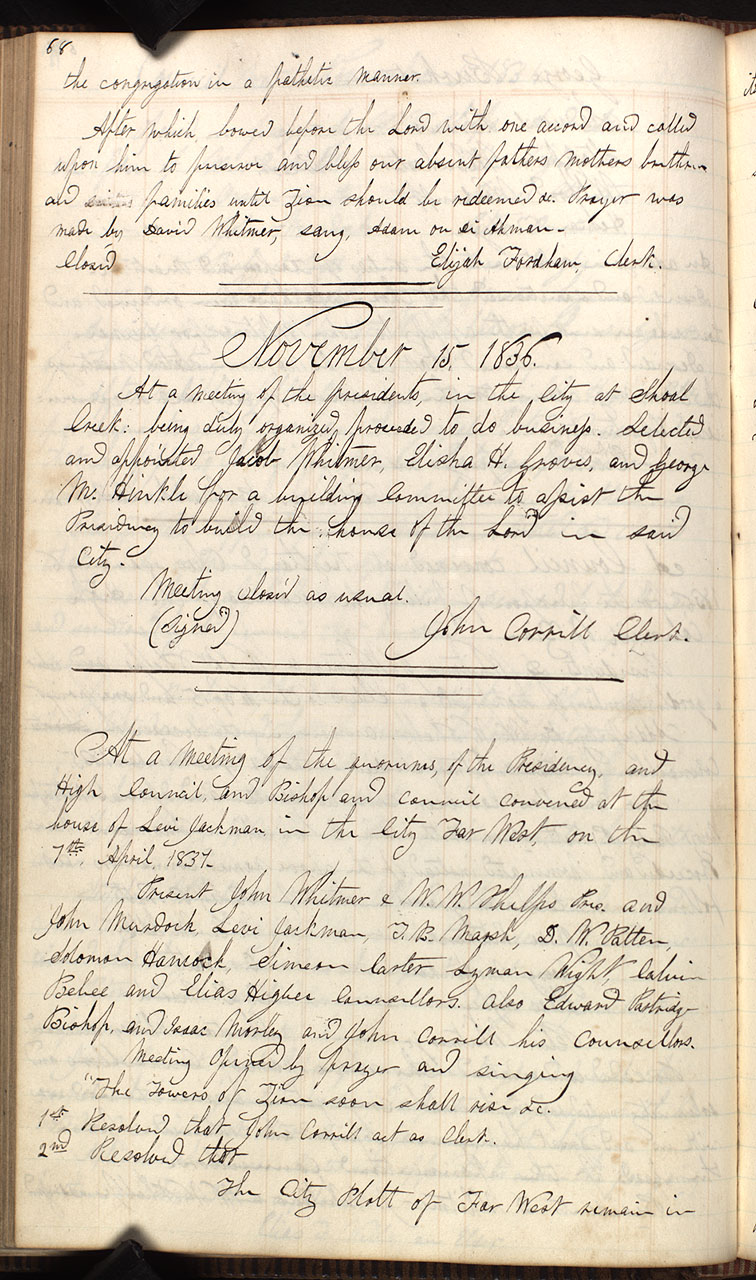 68
the congregation in a pathetic manner.
After which bowed before the Lord with one accord and called
upon him to preserve and bless our absent fathers mothers brethren
and families until Zion should be redeemed &c. Prayer was
made by David Whitmer, sang, Adam on di Ahman.
Closed Elijah Fordham, Clerk.
November 15, 1836.
At a meeting of the presidents, in the City at Shoal
Creek: being duly organized, proceeded to do business. Selected
and appointed Jacob Whitmer, Elisha H. Groves, and George
M. Hinkle for a building Committee to assist the
Presidency to build the house of the Lord in said
City.
Meeting closed as usual.
(Signed) John Corrill Clerk.
At a Meeting of the quorums, of the Presidency, and
High Council, and Bishop and council convened at the
house of Levi Jackman, in the City Far West, on the
7th, April, 1837.
Present John Whitmer & W. W. Phelps Pres. and
John Murdock, Levi Jackman, T. B. Marsh, D. W. Patten,
Solomon Hancock, Simeon Carter Lyman Wight Calvin
Bebee and Elias Higbee Councellors. also Edward Partridge
Bishop, and Isaac Morley and John Corrill his Counsellors.
Meeting Opened by prayer and singing
"The Towers of Zion soon shall rise &c.
1st Resolved that John Corrill act as Clerk.
2nd Resolved that
The City Plott of Far West remain in